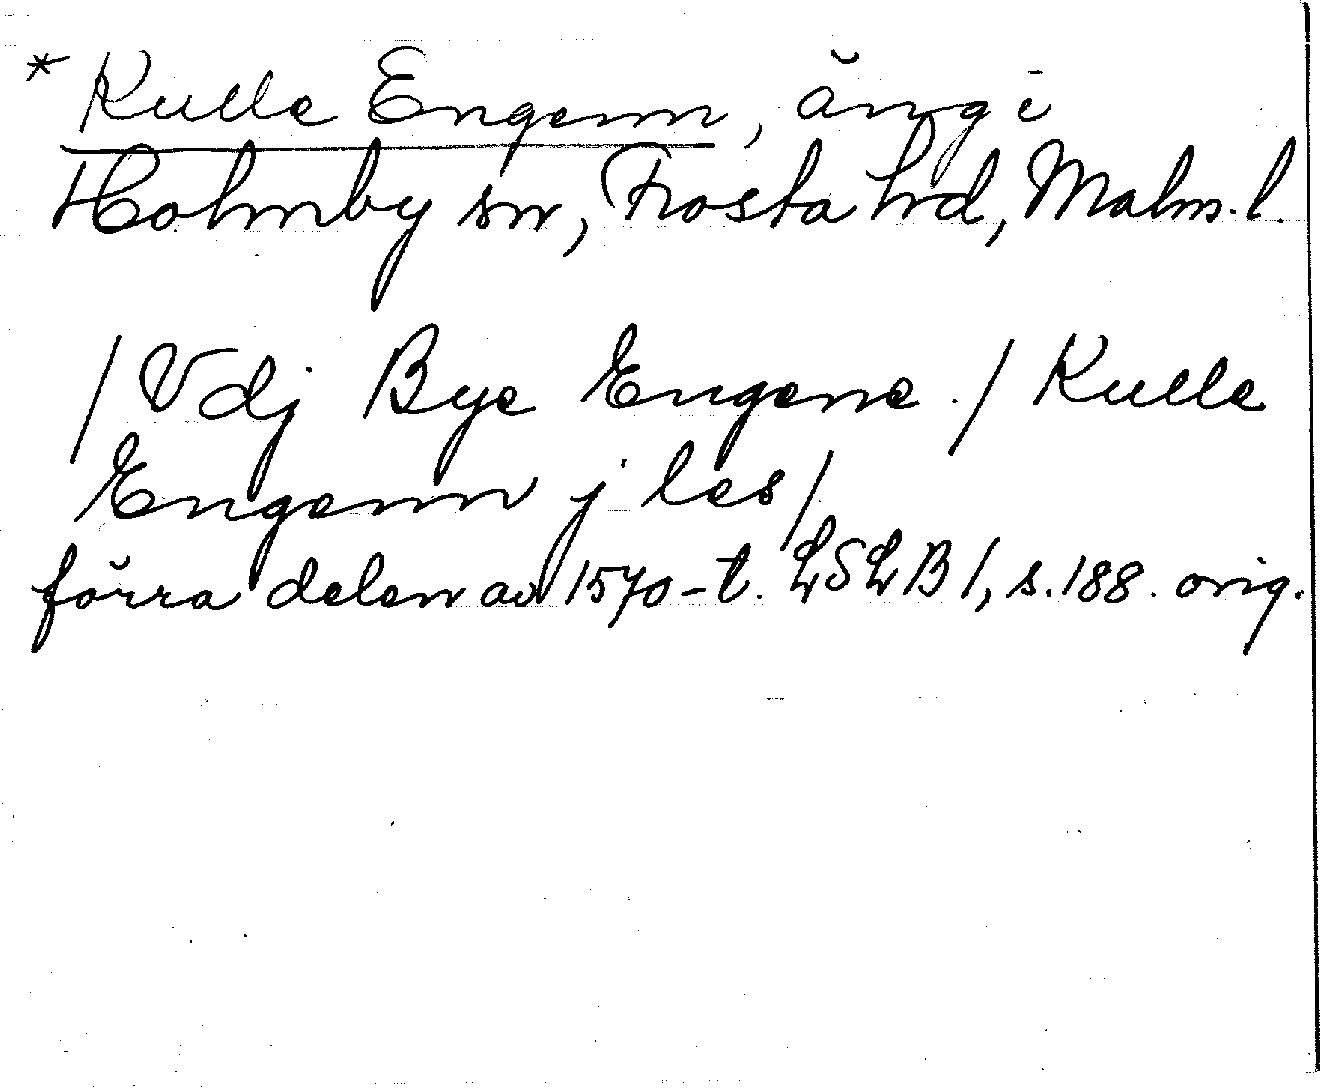 * Kulle Engenn, äng i
Holmby sn, Frosta hd, Malm. l.
/ Vdj Bye Engene. / Kulle
Engenn j les /
förra delen av 1570-t. LSLB 1, s. 188. orig.